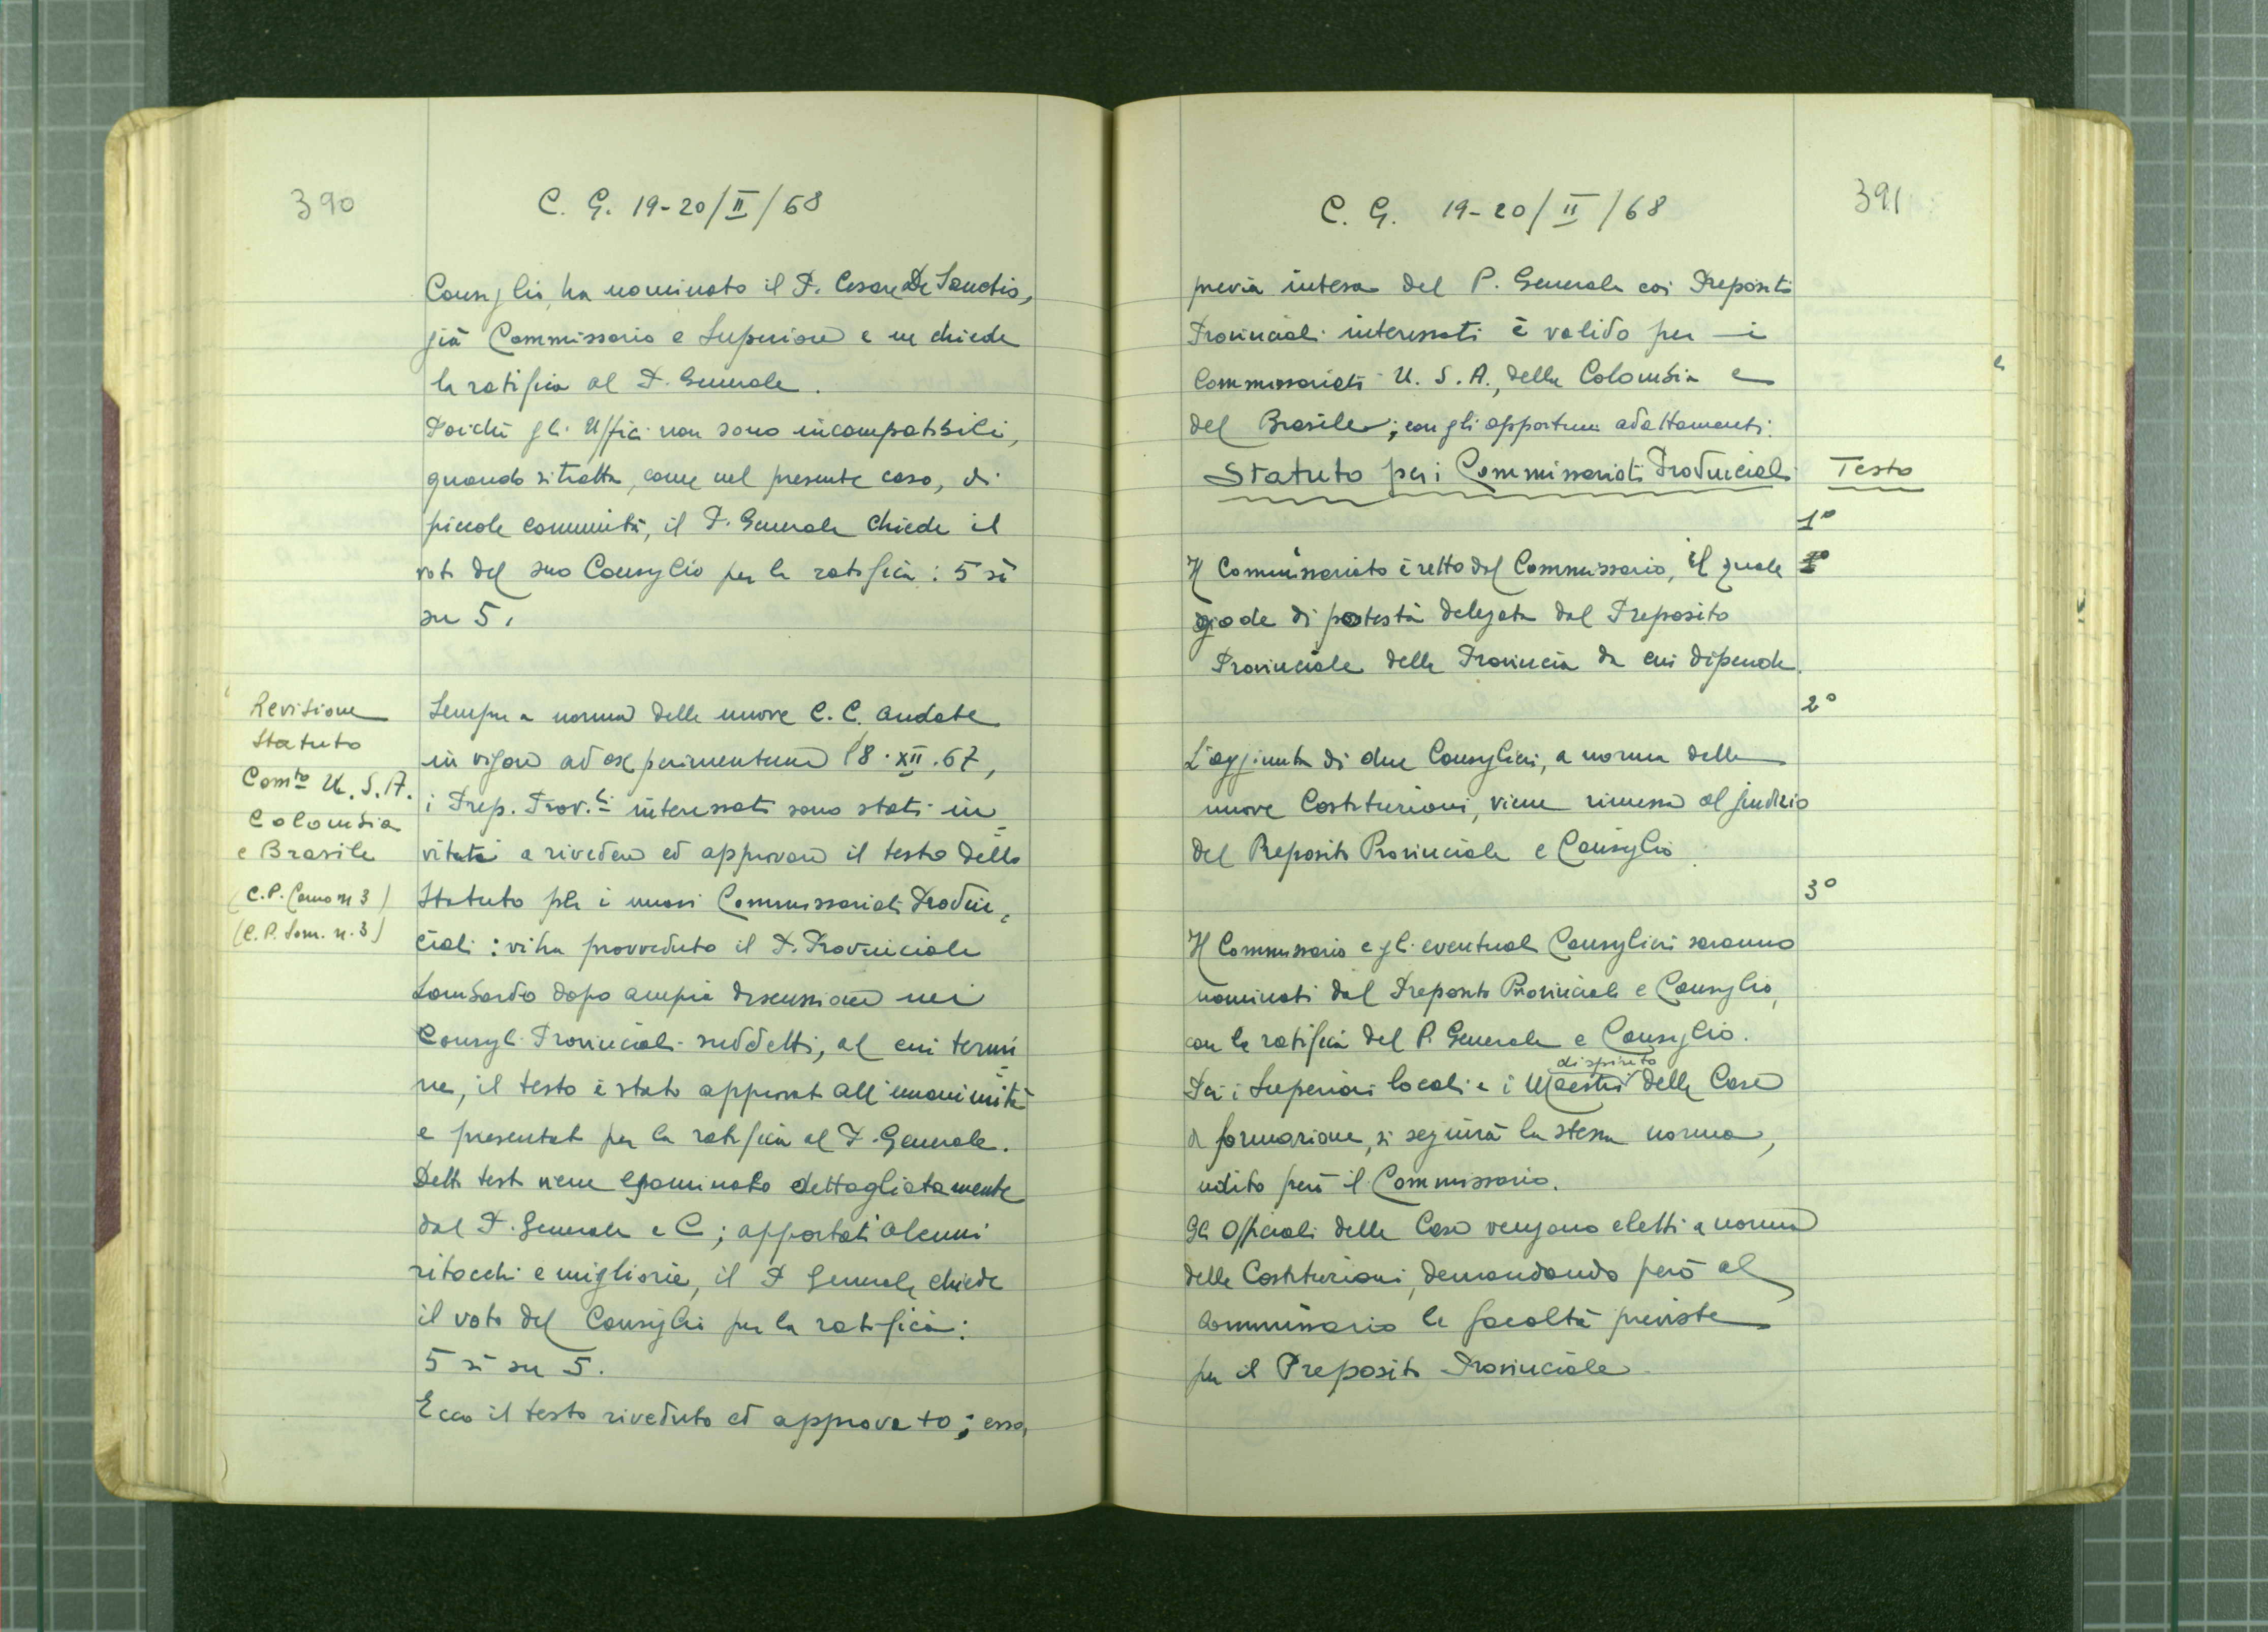 390
C. G. 19-20/II/68
Consiglio, ha nominato il P. Cesare De Sanctis,
già Commissario e Superiore e ne chiede
la ratifica al P. Generale.
Poichè gli Uffici non sono incompatibili,
quando si tratta, come nel presente caso, di
piccole comunità, il P. Generale chiede il
voto del suo Consiglio per la ratifica: 5 sì
su 5.
Revisione
Statuto
Com.to U.S.A.
Colombia
e Brasile
(C.P. Como n 3)
(C.P. Lom. n. 3)
Sempre a norma delle nuove C.C. andate
in vigore ad experimentum l'8.XII.67,
i Prep. Prov.li interessati sono stati in-
vitati a rivedere ed approvare il testo dello
Statuto per i nuovi Commissariati Provin-
ciali: vi ha provveduto il P. Provinciale
Lombardo dopo ampia discussione nei
Consigli Provinciali suddetti, al cui termi-
ne, il testo è stato approvato all'unanimità
e presentato per la ratifica al P. Generale.
Detto testo viene esaminato dettagliatamente
dal P. Generale e C; apportati alcuni
ritocchi e migliorie, il P Generale chiede
il voto del Consiglio per la ratifica:
5 sì su 5.
Ecco il testo riveduto ed approvato; esso,
391
C. G. 19-20/II/68
previa intesa del P. Generale coi Prepositi
Provinciali interessati è valido per i
Commissariati U.S.A., della Colombia e
del Brasile; con gli opportuni adattamenti.
Statuto per i Commissariati Provinciali Testo
1°
Il Commissariato è retto dal Commissario, il quale
gode di potestà delegata dal Preposito
Provinciale della Provincia da cui dipende.
2°
L'aggiunta di due Consiglieri, a norma delle
nuove Costituzioni, viene rimessa al giudizio
del Preposito Provinciale e Consiglio.
3°
Il Commissario e gli eventuali Consiglieri saranno
nominati dal Preposito Provinciale e Consiglio,
con la ratifica del P. Generale e Consiglio.
Per i Superiori locali e i Maestri di spirito delle Case
di formazione, si seguirà la stessa norma,
udito però il Commissario.
Gli Officiali delle Case vengono eletti a norma
delle Costituzioni, demandando però al
Commissario le facoltà previste
per il Preposito Provinciale.